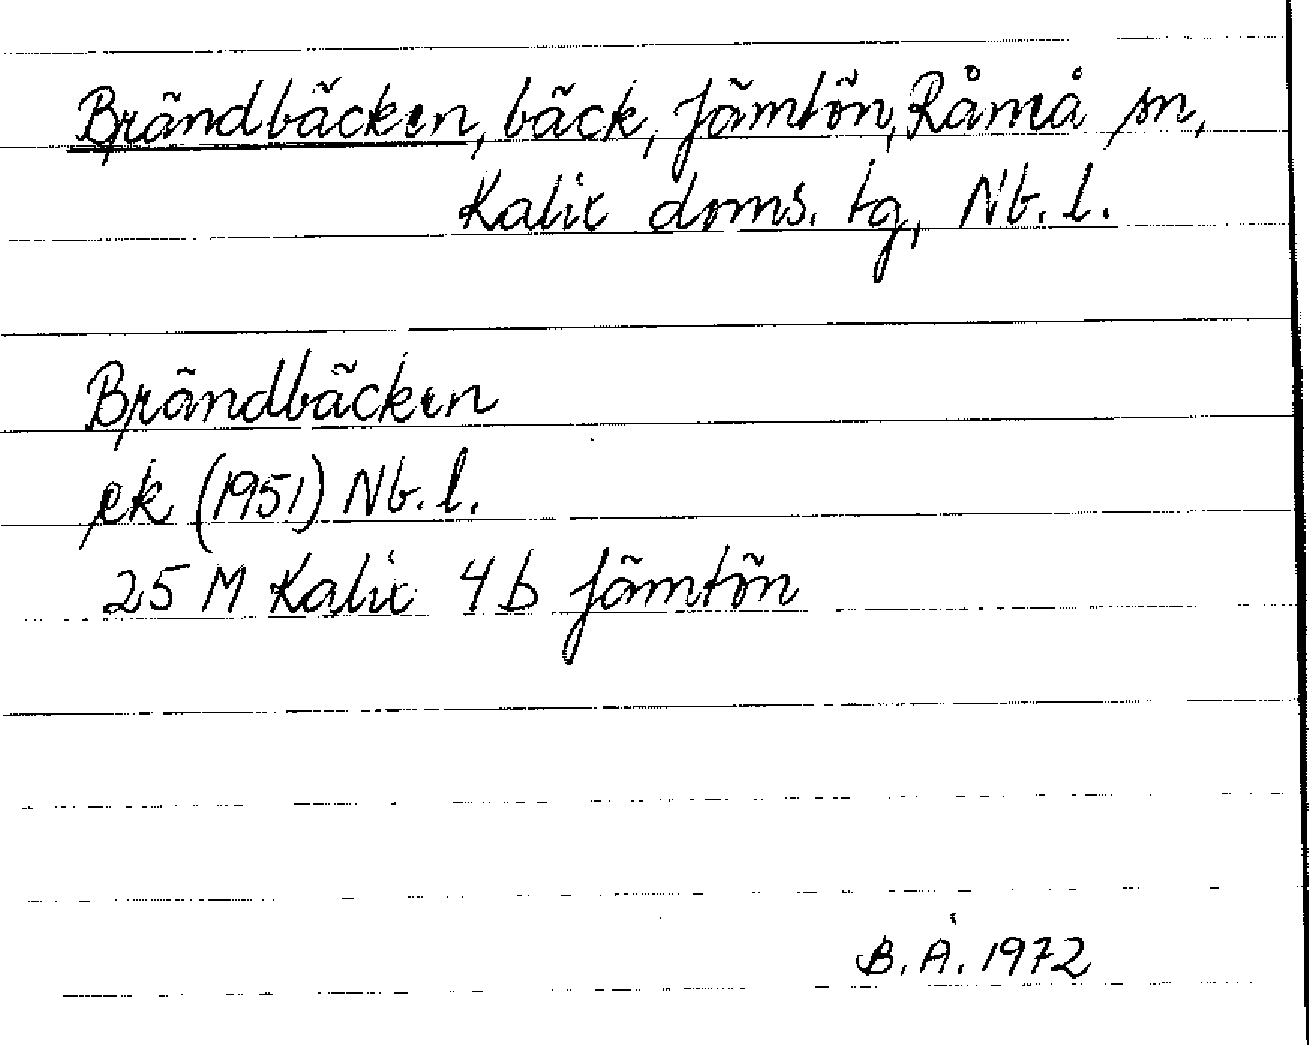 Brändbäcken, bäck, Jämtön, Råneå sn,
Kalix doms. tg, Nb. l.
Brändbäcken
ek (1951) Nb. l.
25 M Kalix 4 b Jämtön
B. Å. 1972